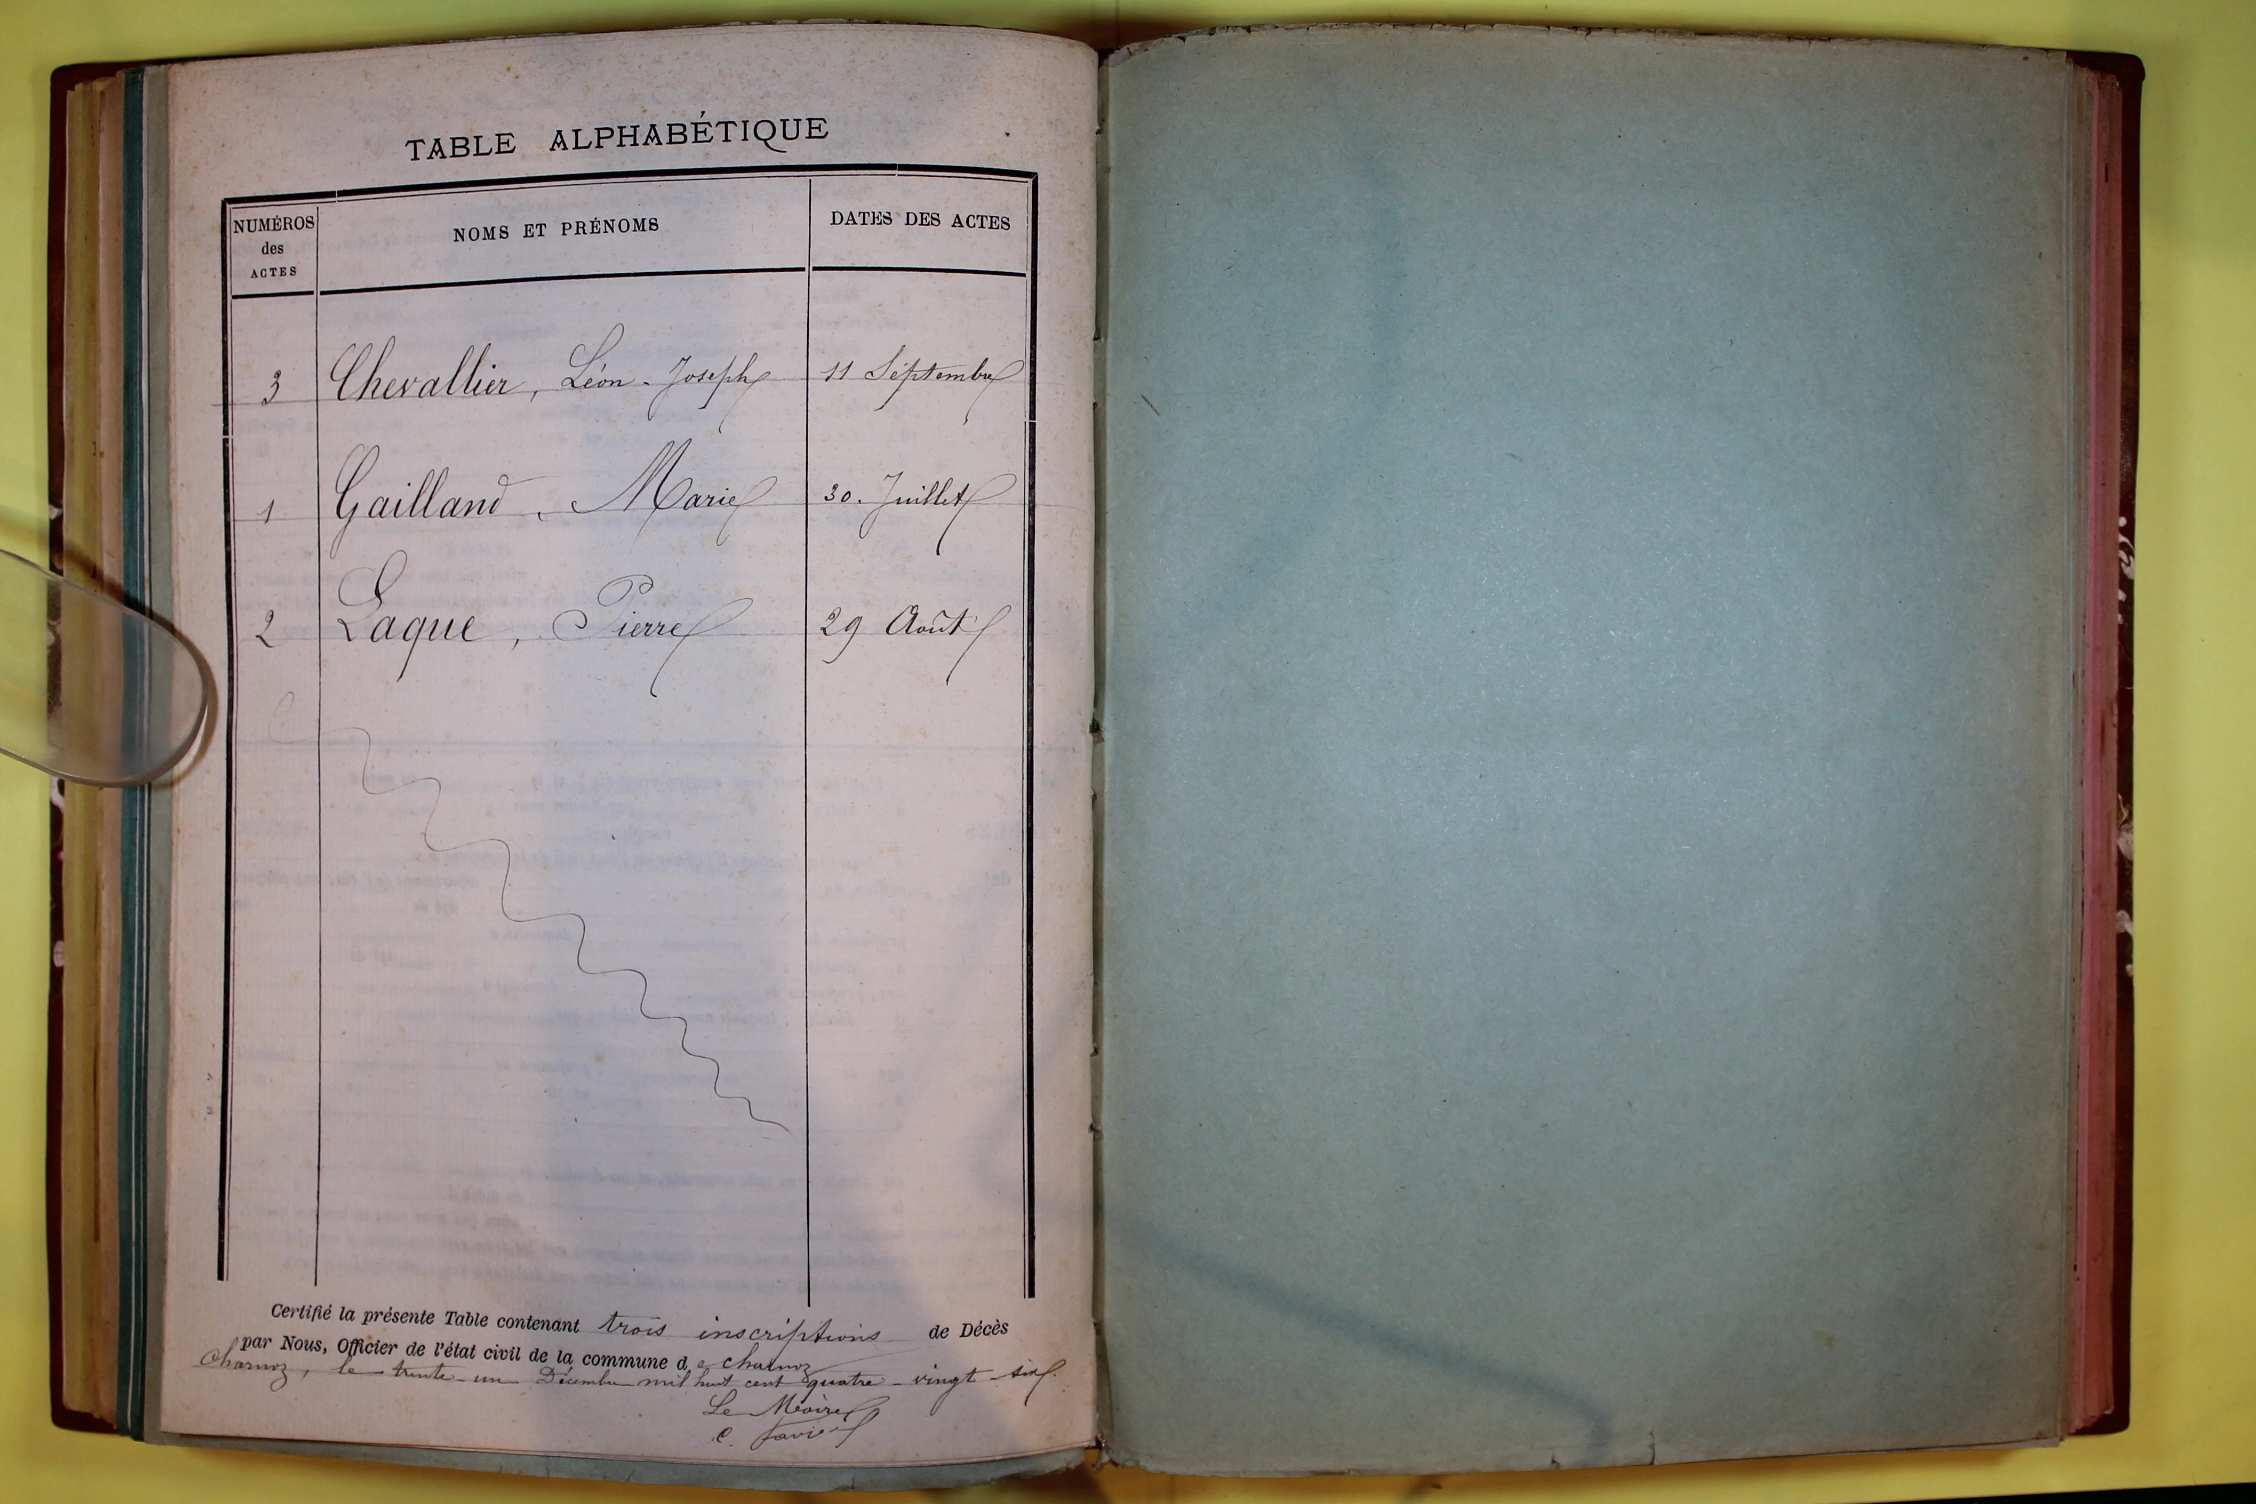 TABLE ALPHABÉTIQUE
NUMÉROS des ACTES NOMS ET PRÉNOMS DATES DES ACTES
3 Chevallier, Léon-Joseph 11 Septembre
1 Gailland, Marie 30 Juillet
2 Laque, Pierre 29 Août
Certifié la présente Table contenant trois inscriptions de Décès
par Nous, Officier de l'état civil de la commune de Charnoz
Charnoz, le trente-un Décembre mil huit cent quatre-vingt-six.
Le Maire
C.